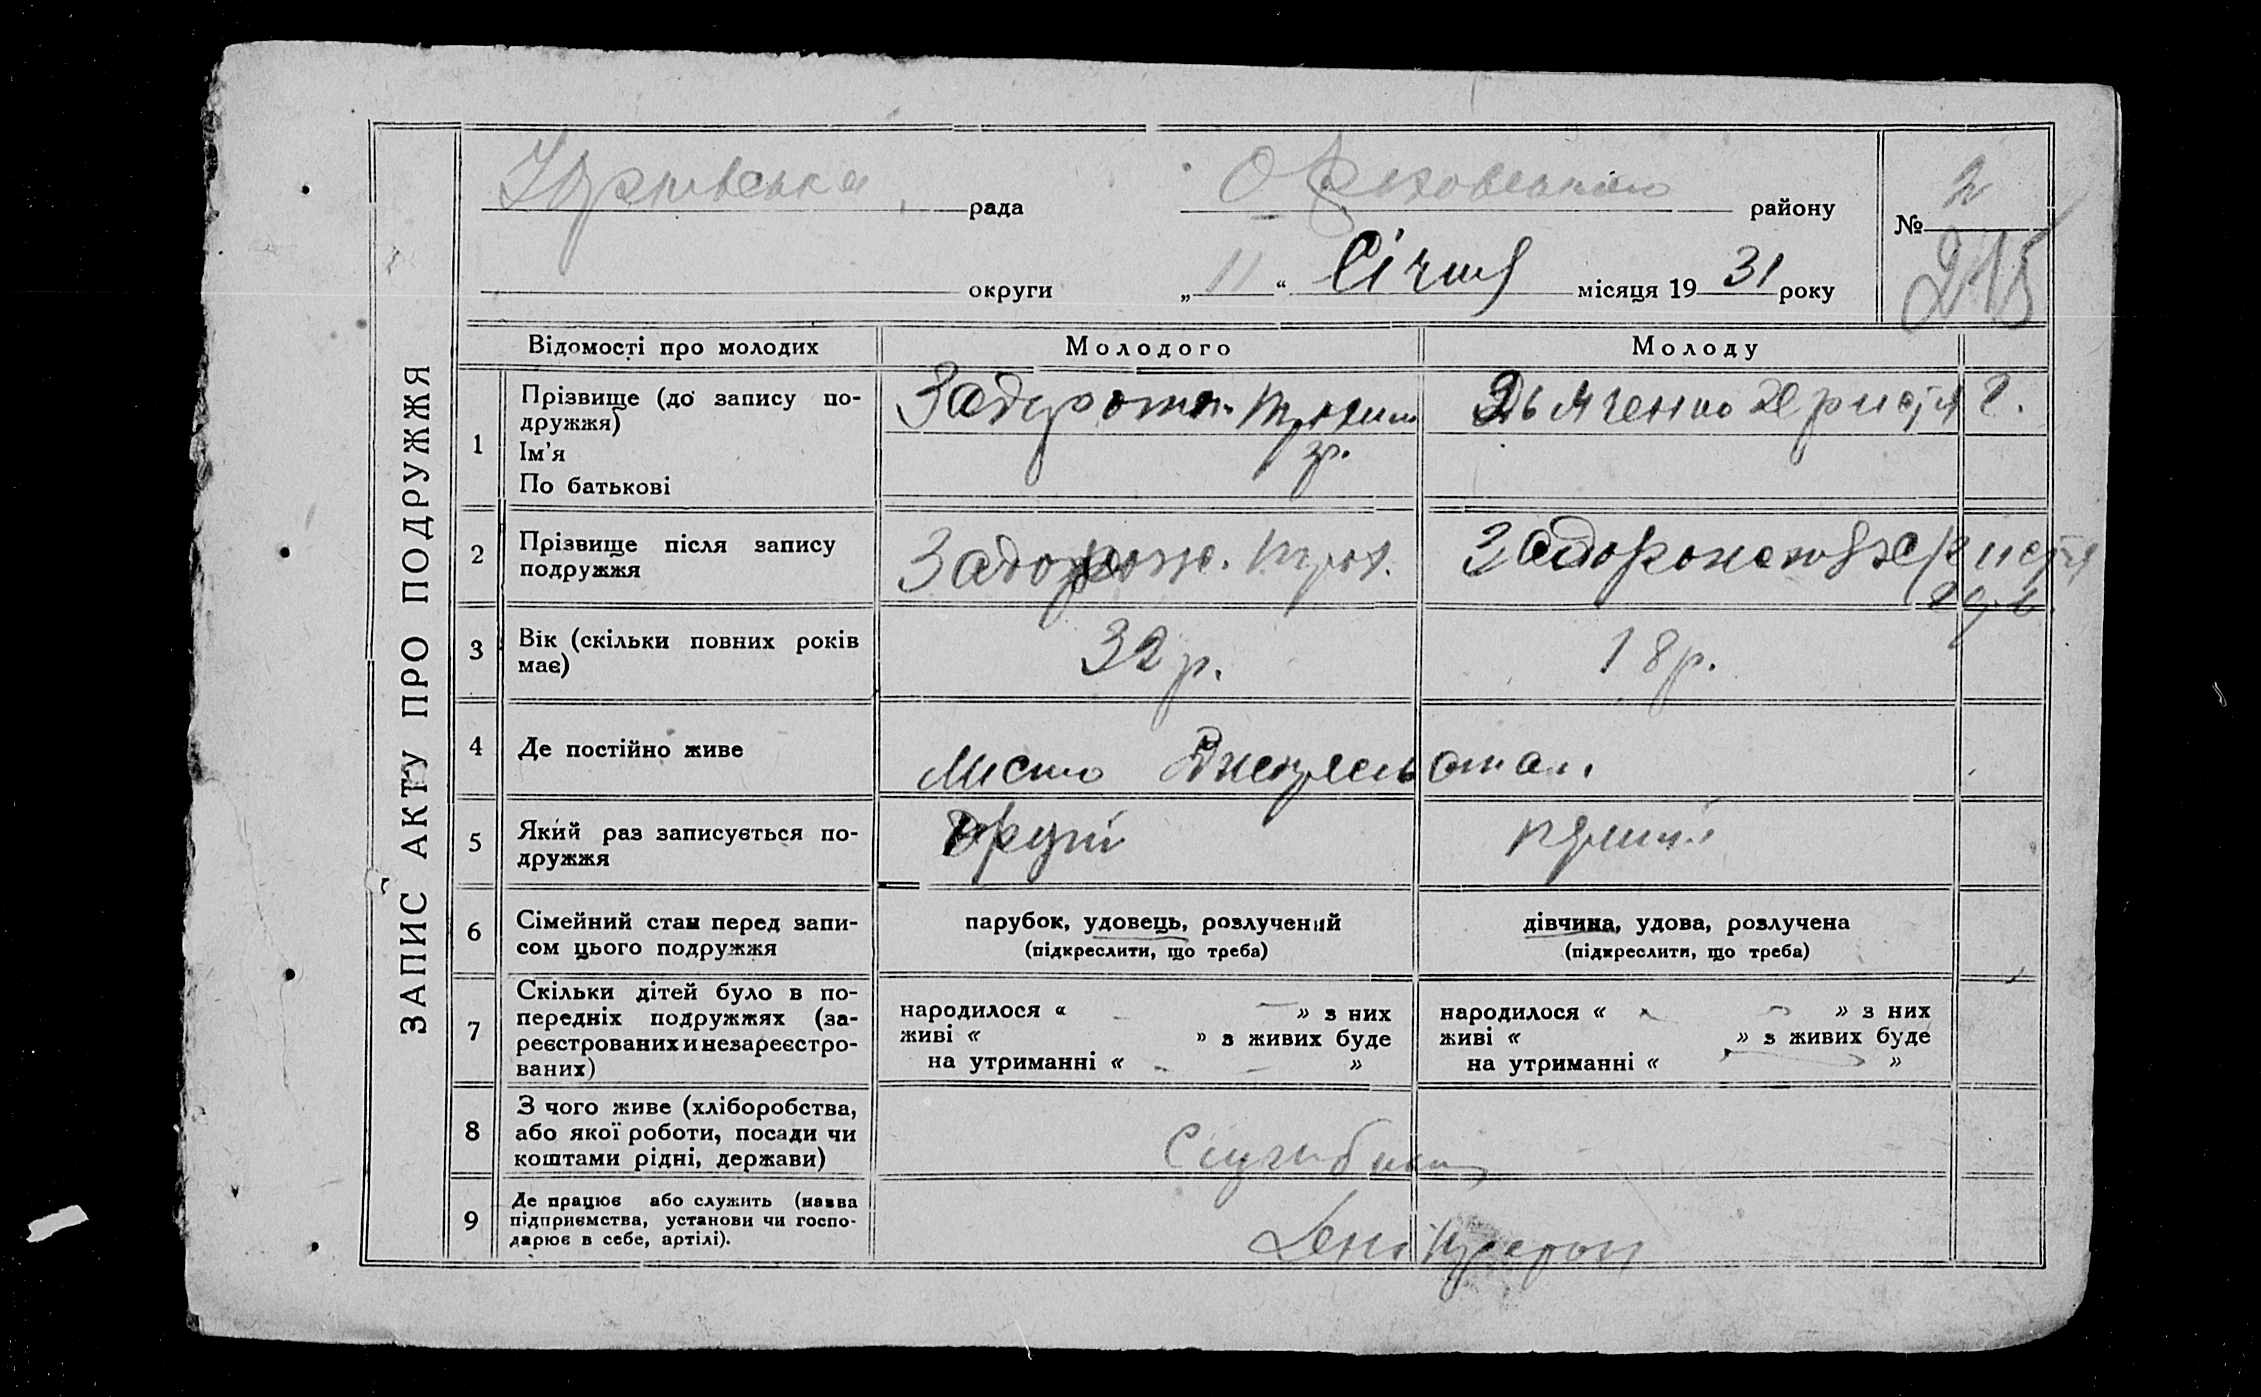 ЗАПИС АКТУ ПРО ПОДРУЖЖЯ
Юрківська рада Оріховського району № 2
215
округи „11“ Січня місяця 1931 року
Відомості про молодих Молодого Молоду
1 Прізвище (до запису по-
дружжя)
Ім'я
По батькові
Задорожн. Трохим
гр.
Дьяченко Христя г.
2 Прізвище після запису
подружжя
Задорож. Трох.
Задорожная Христя
3 Вік (скільки повних років
має)
32 р. 18 р.
4 Де постійно живе
Місто
5 Який раз записується по-
дружжя
другий перший
6 Сімейний стан перед запи-
сом цього подружжя
парубок, удовець, розлучений
(підкреслити, що треба)
дівчина, удова, розлучена
(підкреслити, що треба)
7 Скільки дітей було в по-
передніх подружжях (за-
реєстрованих и незареєстро-
ваних)
народилося « — » з них
живі « » з живих буде
на утриманні « — »
народилося « — » з них
живі « » з живих буде
на утриманні « »
8 З чого живе (хліборобства,
або якої роботи, посади чи
коштами рідні, держави)
9 Де працює або служить (назва
підприємства, установи чи госпо-
дарює в себе, артілі).